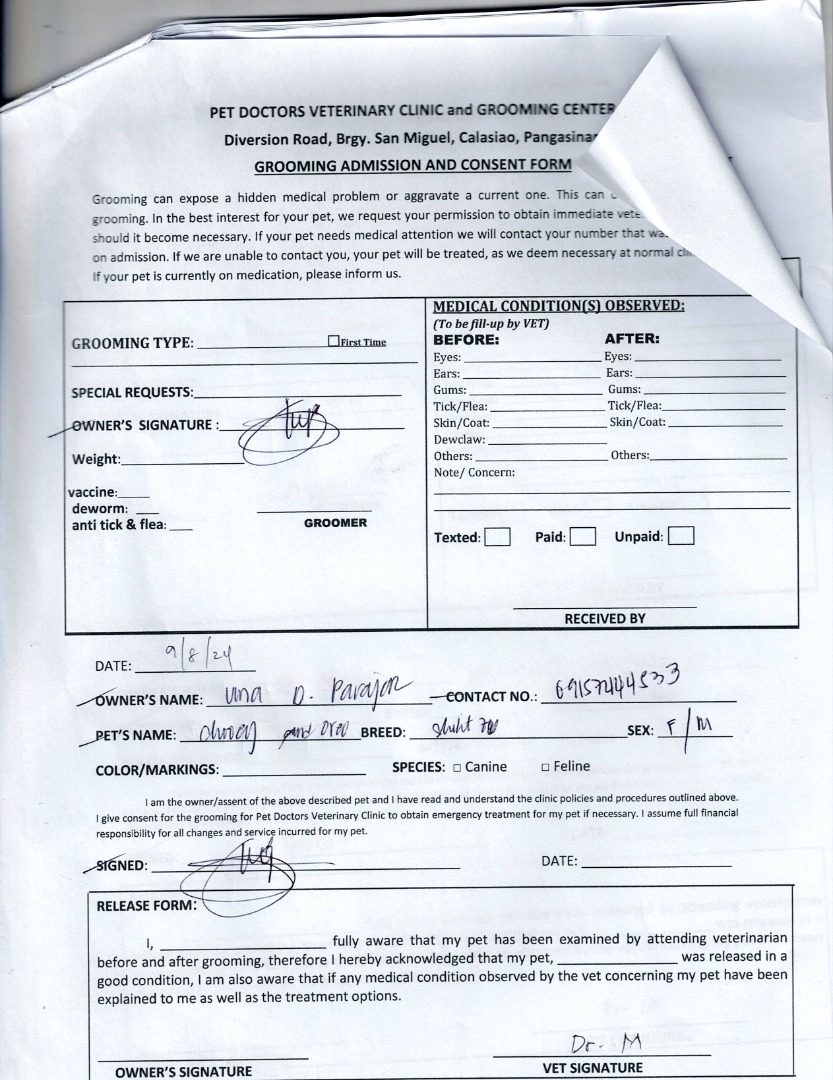 PET DOCTORS VETERINARY CLINIC and GROOMING CENTER
Diversion Road, Brgy. San Miguel, Calasiao, Pangasinan
GROOMING ADMISSION AND CONSENT FORM
Grooming can expose a hidden medical problem or aggravate a current one. This can
grooming. In the best interest for your pet, we request your permission to obtain immediate
should it become necessary. If your pet needs medical attention we will contact your number that
on admission. If we are unable to contact you, your pet will be treated, as we deem necessary at normal
If your pet is currently on medication, please inform us.
GROOMING TYPE: First Time
SPECIAL REQUESTS:
OWNER'S SIGNATURE :
Weight:
vaccine:
deworm:
anti tick & flea:
GROOMER
MEDICAL CONDITION(S) OBSERVED:
(To be fill-up by VET)
BEFORE: AFTER:
Eyes: Eyes:
Ears: Ears:
Gums: Gums:
Tick/Flea: Tick/Flea:
Skin/Coat: Skin/Coat:
Dewclaw:
Others: Others:
Note/ Concern:
Texted: Paid: Unpaid:
RECEIVED BY
DATE: 9/8/24
OWNER'S NAME: Una D. Parajar CONTACT NO.:
PET'S NAME: and Oreo BREED: SEX: F/M
COLOR/MARKINGS: SPECIES: Canine Feline
I am the owner/assent of the above described pet and I have read and understand the clinic policies and procedures outlined above.
I give consent for the grooming for Pet Doctors Veterinary Clinic to obtain emergency treatment for my pet if necessary. I assume full financial
responsibility for all changes and service incurred for my pet.
SIGNED: DATE:
RELEASE FORM:
I, fully aware that my pet has been examined by attending veterinarian
before and after grooming, therefore I hereby acknowledged that my pet, was released in a
good condition, I am also aware that if any medical condition observed by the vet concerning my pet have been
explained to me as well as the treatment options.
Dr. M
OWNER'S SIGNATURE VET SIGNATURE